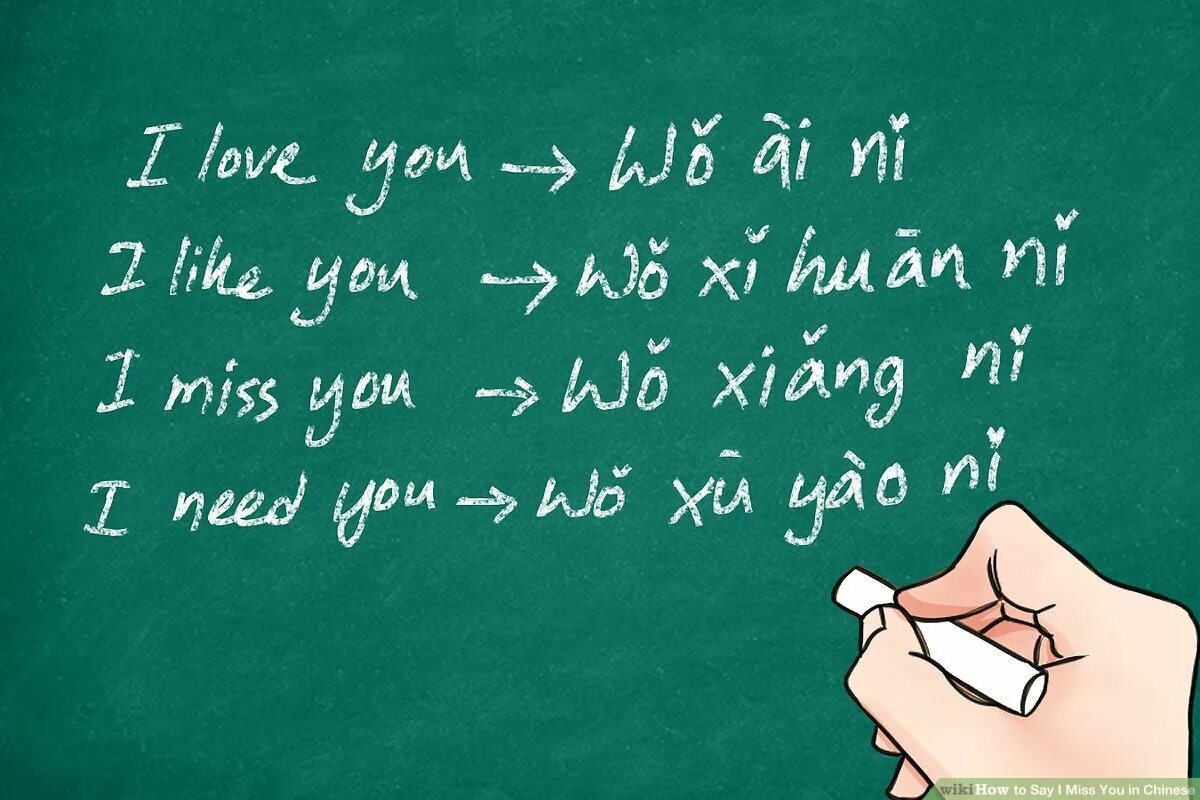 I love you → Wǒ ài nǐ
I like you → Wǒ xǐ huān nǐ
I miss you → Wǒ xiǎng nǐ
I need you → Wǒ xū yào nǐ
wikiHow to Say I Miss You in Chinese